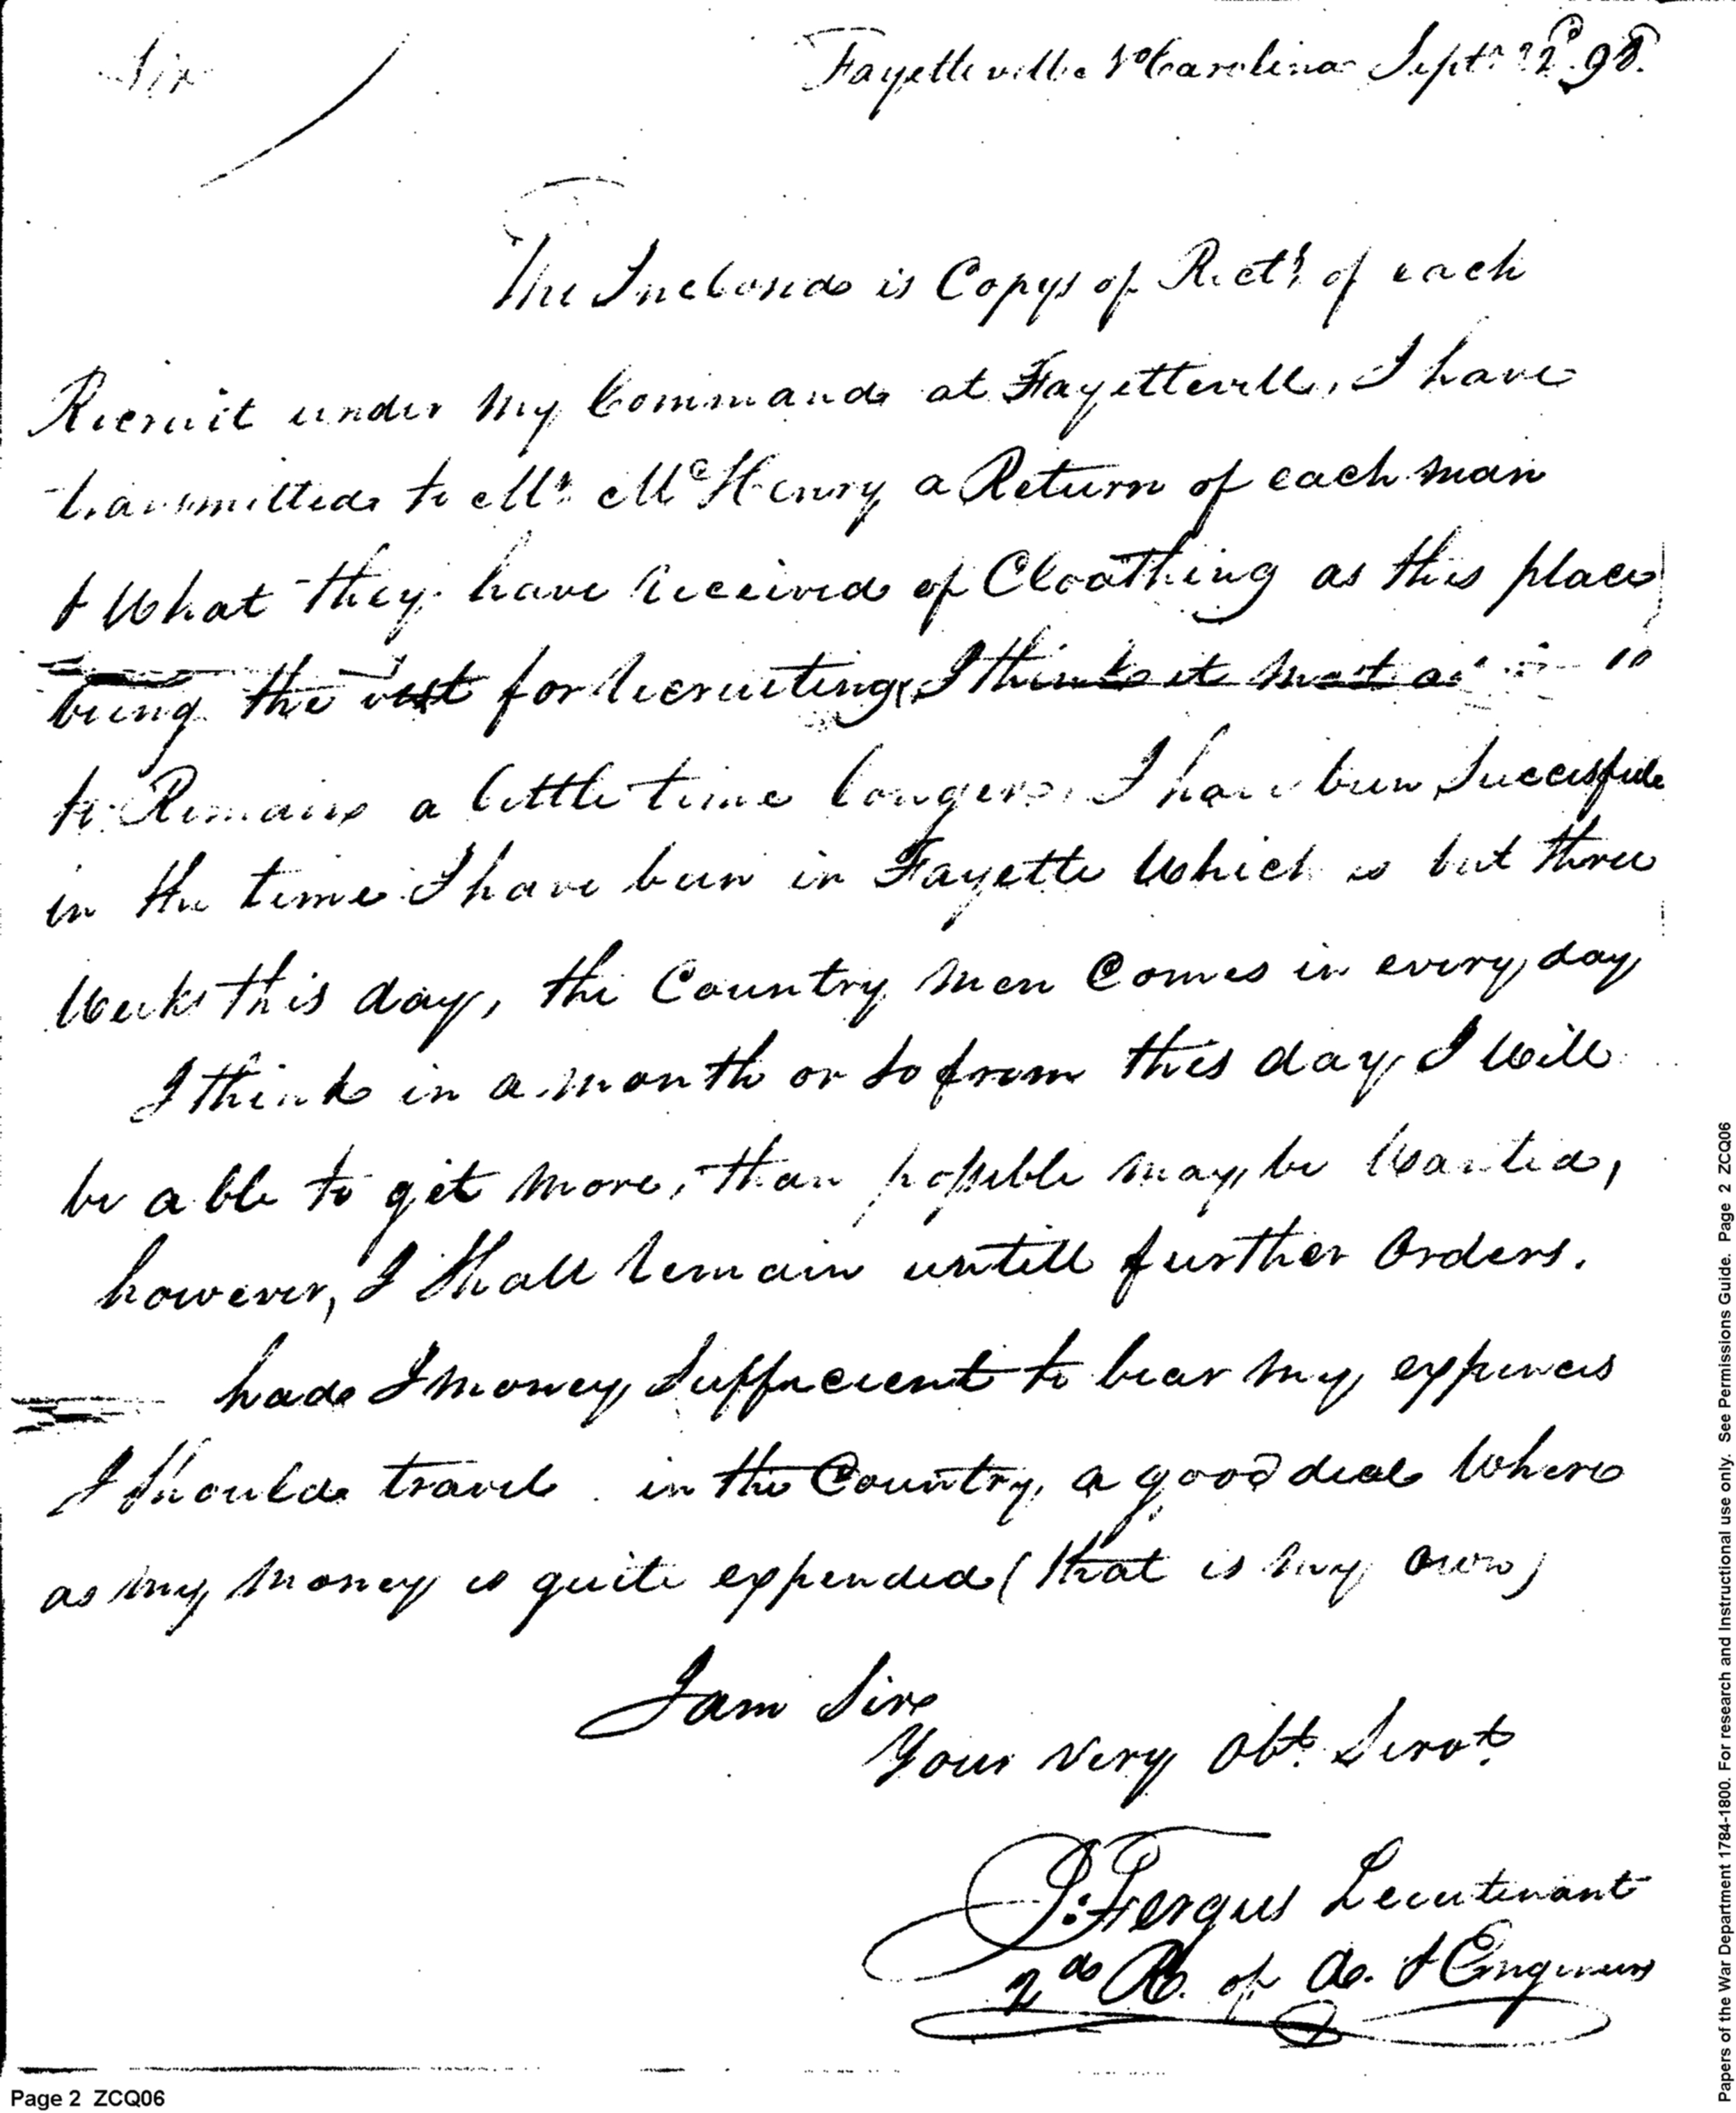 Sir
Fayetteville No Carolina Septr 22d 98.
The Inclosed is Copys of Rects of each
Recruit under my Command at Fayetteville, I have
transmitted to Mr McHenry a Return of each man
& What they have Received of Cloathing as this place
being the best for Recruiting, I think it most
to Remain a little time longer, I have been Successfull
in the time I have been in Fayette Which is but three
Weeks this day, the Country men Comes in every day
I think in a month or so from this day I Will
be able to get more, than possible may be Wanted,
however, I shall Remain untill further Orders.
had I money Sufficient to bear my expences
I should travel in the Country, a good deal Where
as my money is quite expended (that is my own)
I am Sir
Your very Obt. Servt.
J: Fergus Leiutenant
2d R. of A. & Engineers
Page 2 ZCQ06
Papers of the War Department 1784-1800. For research and Instructional use only. See Permissions Guide. Page 2 ZCQ06